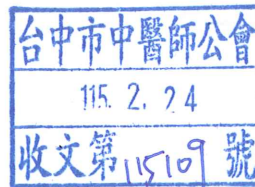 台中市中醫師公會
115. 2. 24
收文第115109號